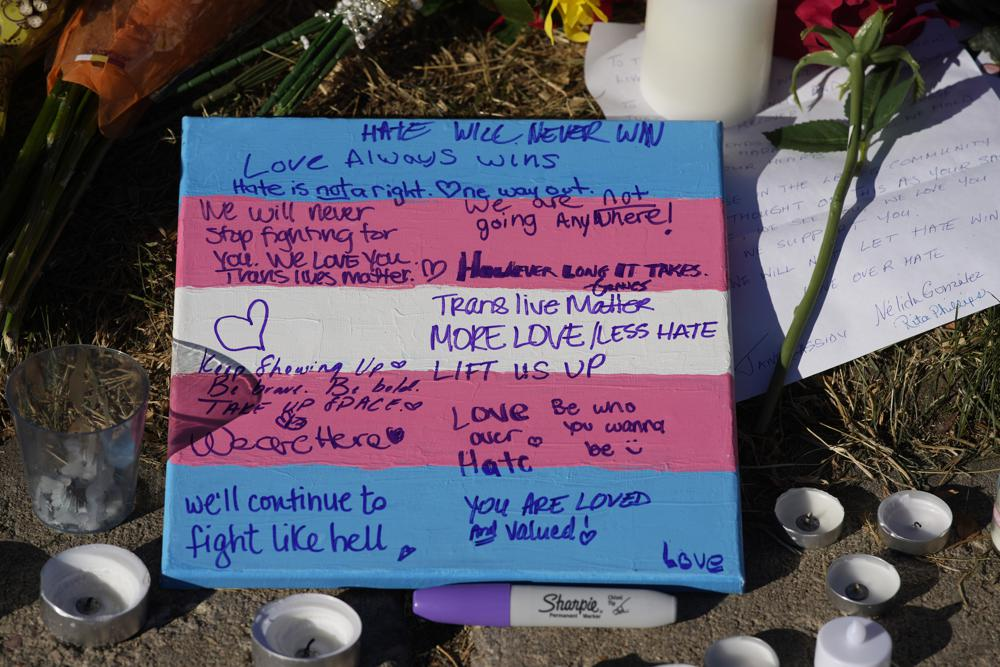 HATE WILL NEVER WIN
LOVE ALWAYS WINS
Hate is not a right. One way out.
We will never
stop fighting for
you. We Love You.
Trans lives matter.
We are not
going Anywhere!
HOWEVER LONG IT TAKES.
Trans live Matter
MORE LOVE/LESS HATE
LIFT US UP
Keep Showing Up
Be brave. Be bold.
TAKE UP SPACE.
We are Here
LOVE
over
Hate
Be who
you wanna
be
we'll continue to
fight like hell
YOU ARE LOVED
And Valued!
Love
Sharpie
Permanent Marker
COMMUNITY
WE LOVE YOU
SUPPORT YOU.
LET HATE WIN
LOVE OVER HATE
Nélida González
Rita
CASSIDY